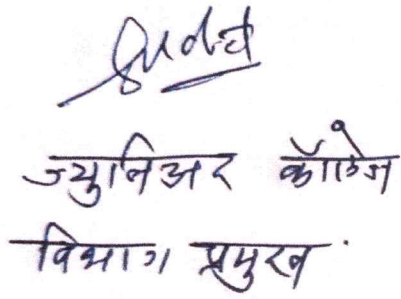 ज्युनिअर कॉलेज
विभाग प्रमुख.